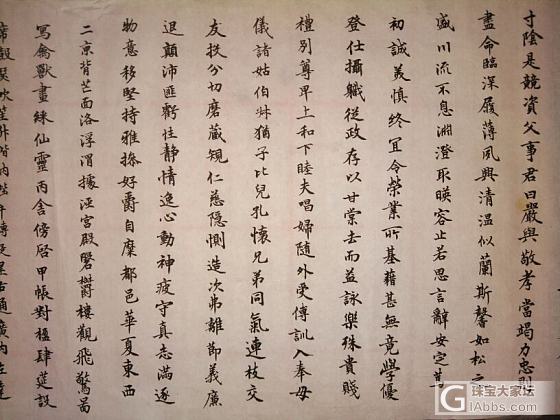 寸陰是競資父事君曰嚴與敬孝當竭力忠則
盡命臨深履薄夙興清温似蘭斯馨如松之
盛川流不息淵澄取暎容止若思言辭安定篤
初誠美慎終宜令榮業所基藉甚無竟學優
登仕攝職從政存以甘棠去而益詠樂殊貴賤
禮別尊卑上和下睦夫唱婦隨外受傅訓入奉母
儀諸姑伯叔猶子比兒孔懷兄弟同氣連枝交
友投分切磨箴規仁慈隱惻造次弗離節義廉
退顛沛匪虧性静情逸心動神疲守真志滿逐
物意移堅持雅操好爵自縻都邑華夏東西
二京背芒面洛浮渭據涇宮殿磐欝樓觀飛驚圖
寫禽獸畫綵仙靈丙舍傍啓甲帳對楹肆莚設
席鼓瑟吹笙升階納陛弁轉疑星右通廣內左達
珠宝大家坛
gemdiy.com